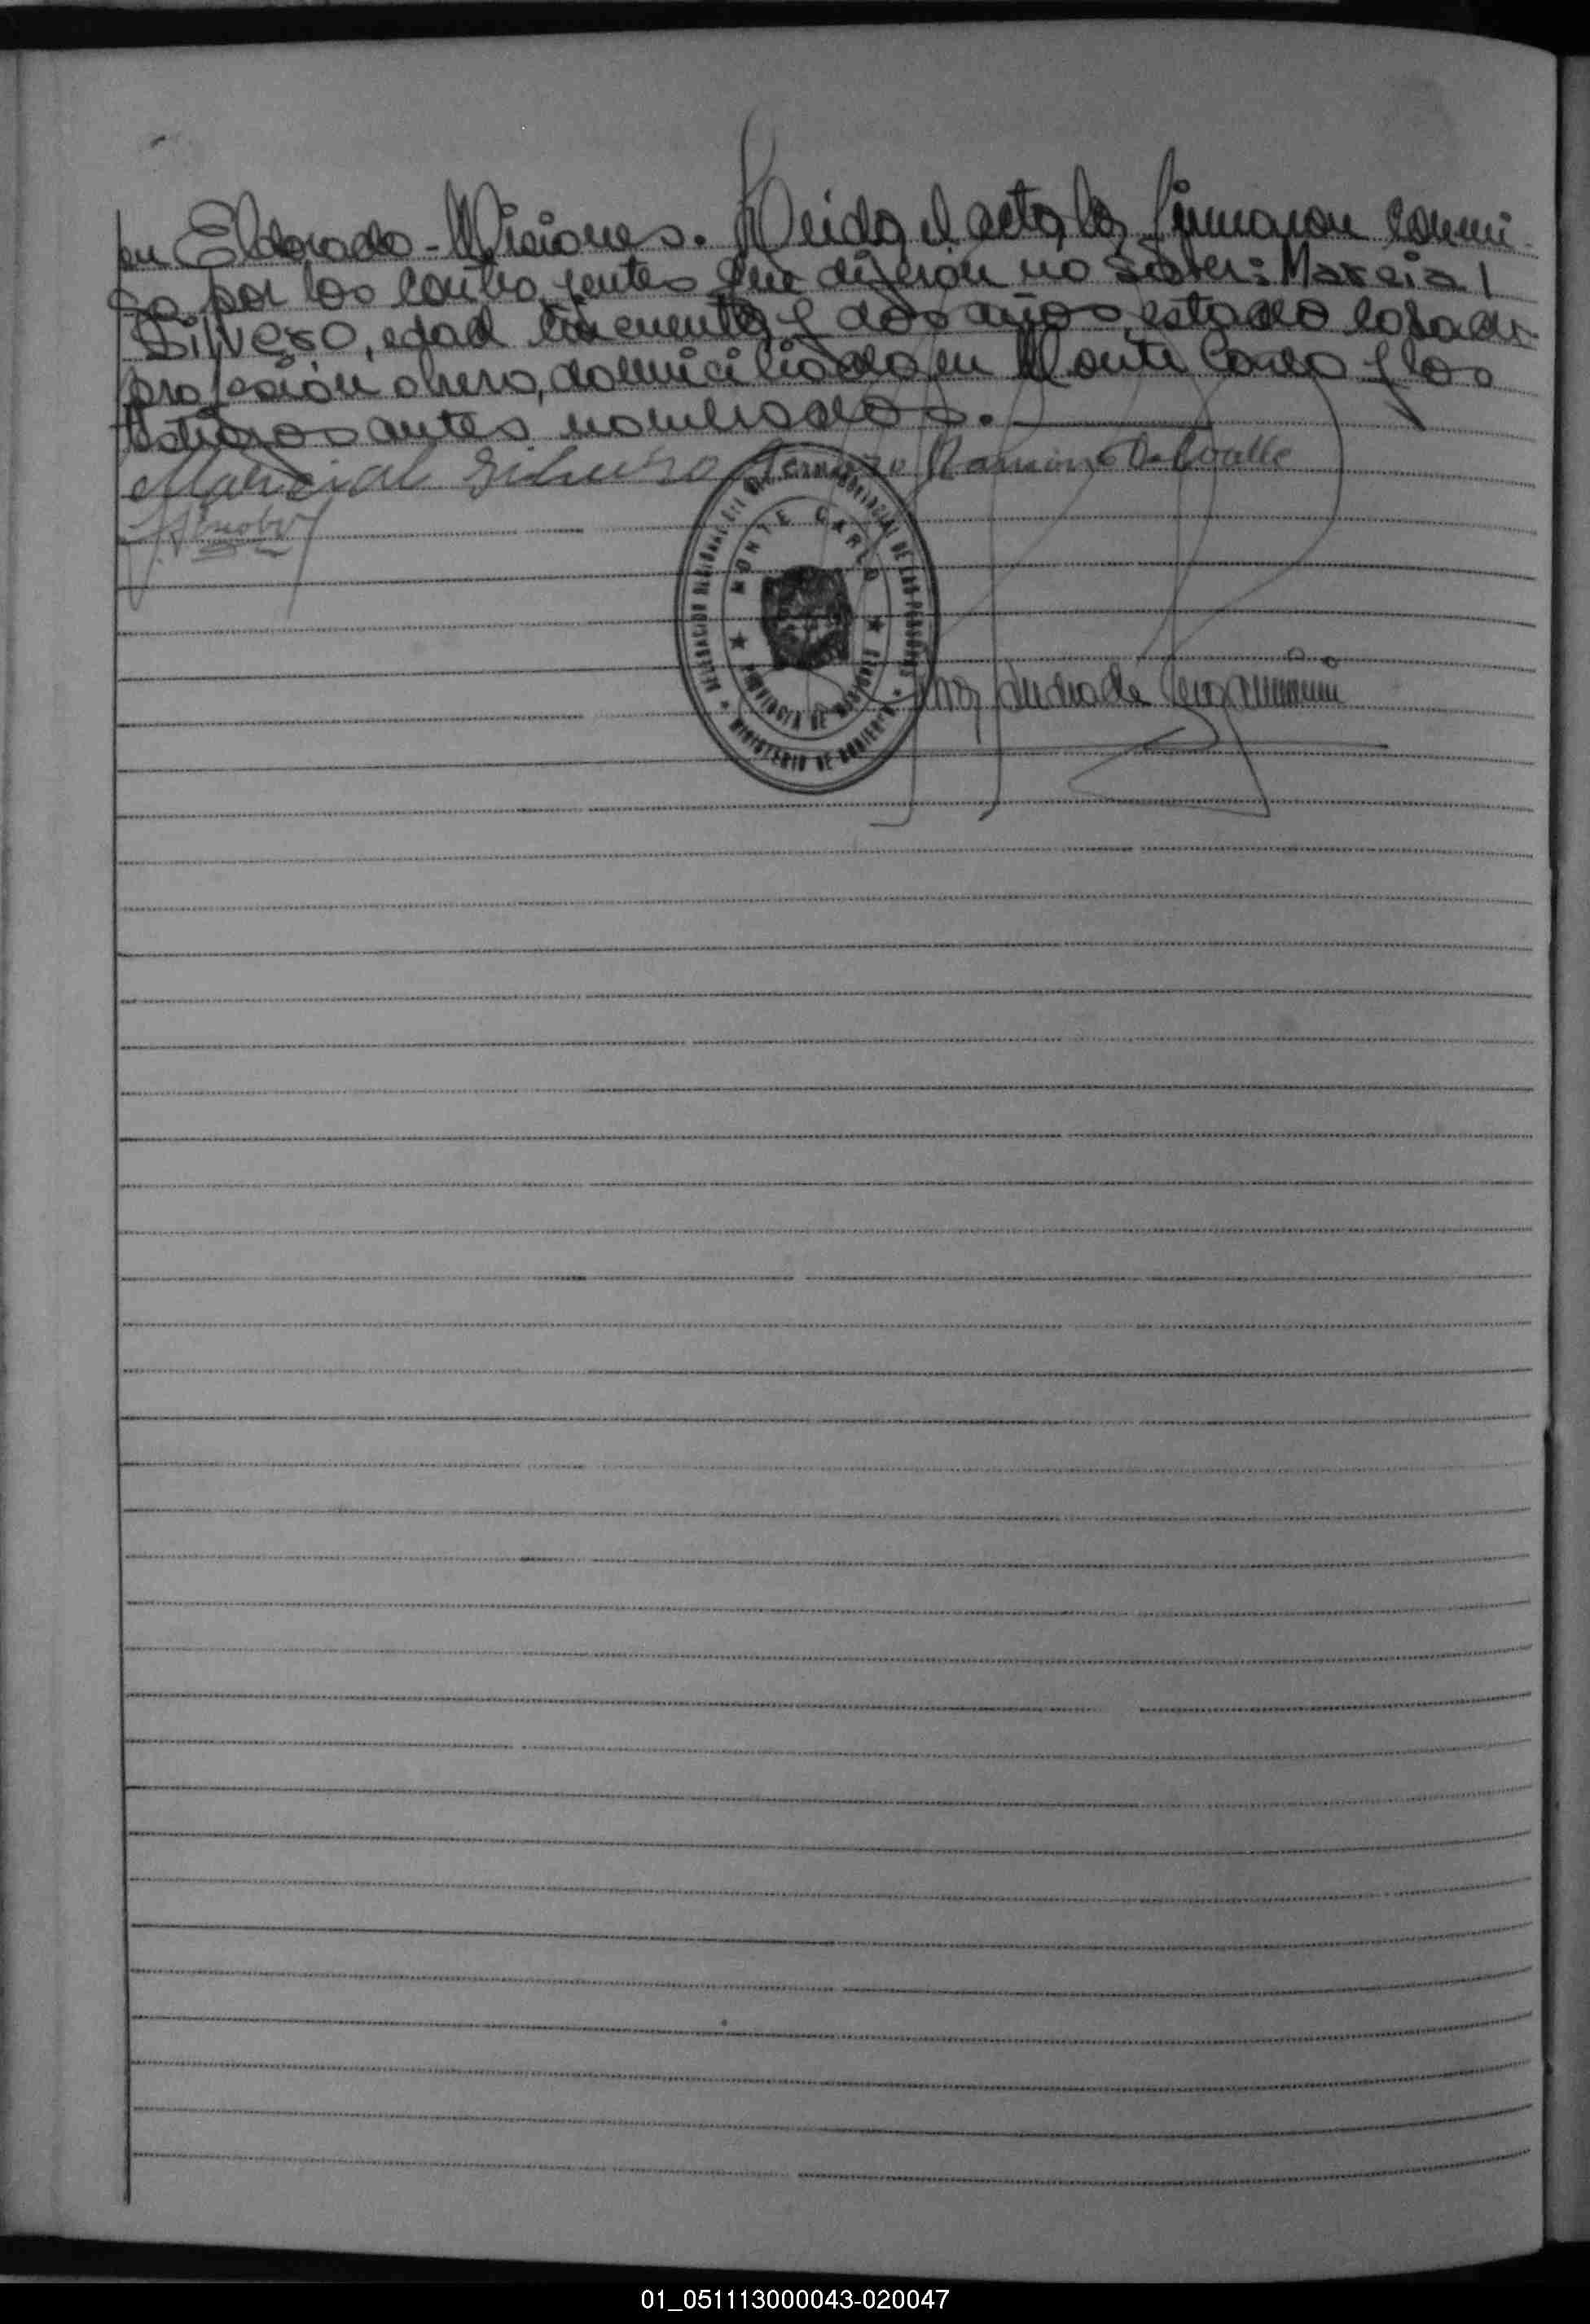 en Eldorado - Misiones. Leida el acta, la firmaron conmi-
go por los contrayentes que dijeron no saber: Marcial
Silvero, edad cincuenta y dos años, estado casado
profesión obrero, domiciliado en Monte Carlo y los
testigos antes nombrados.
Marcial Silvero Ramirez Ovalle
DELEGACION PROVINCIAL DE LAS PERSONAS
MONTE CARLO
PROVINCIA DE MISIONES
MINISTERIO DE GOBIERNO
01_051113000043-020047